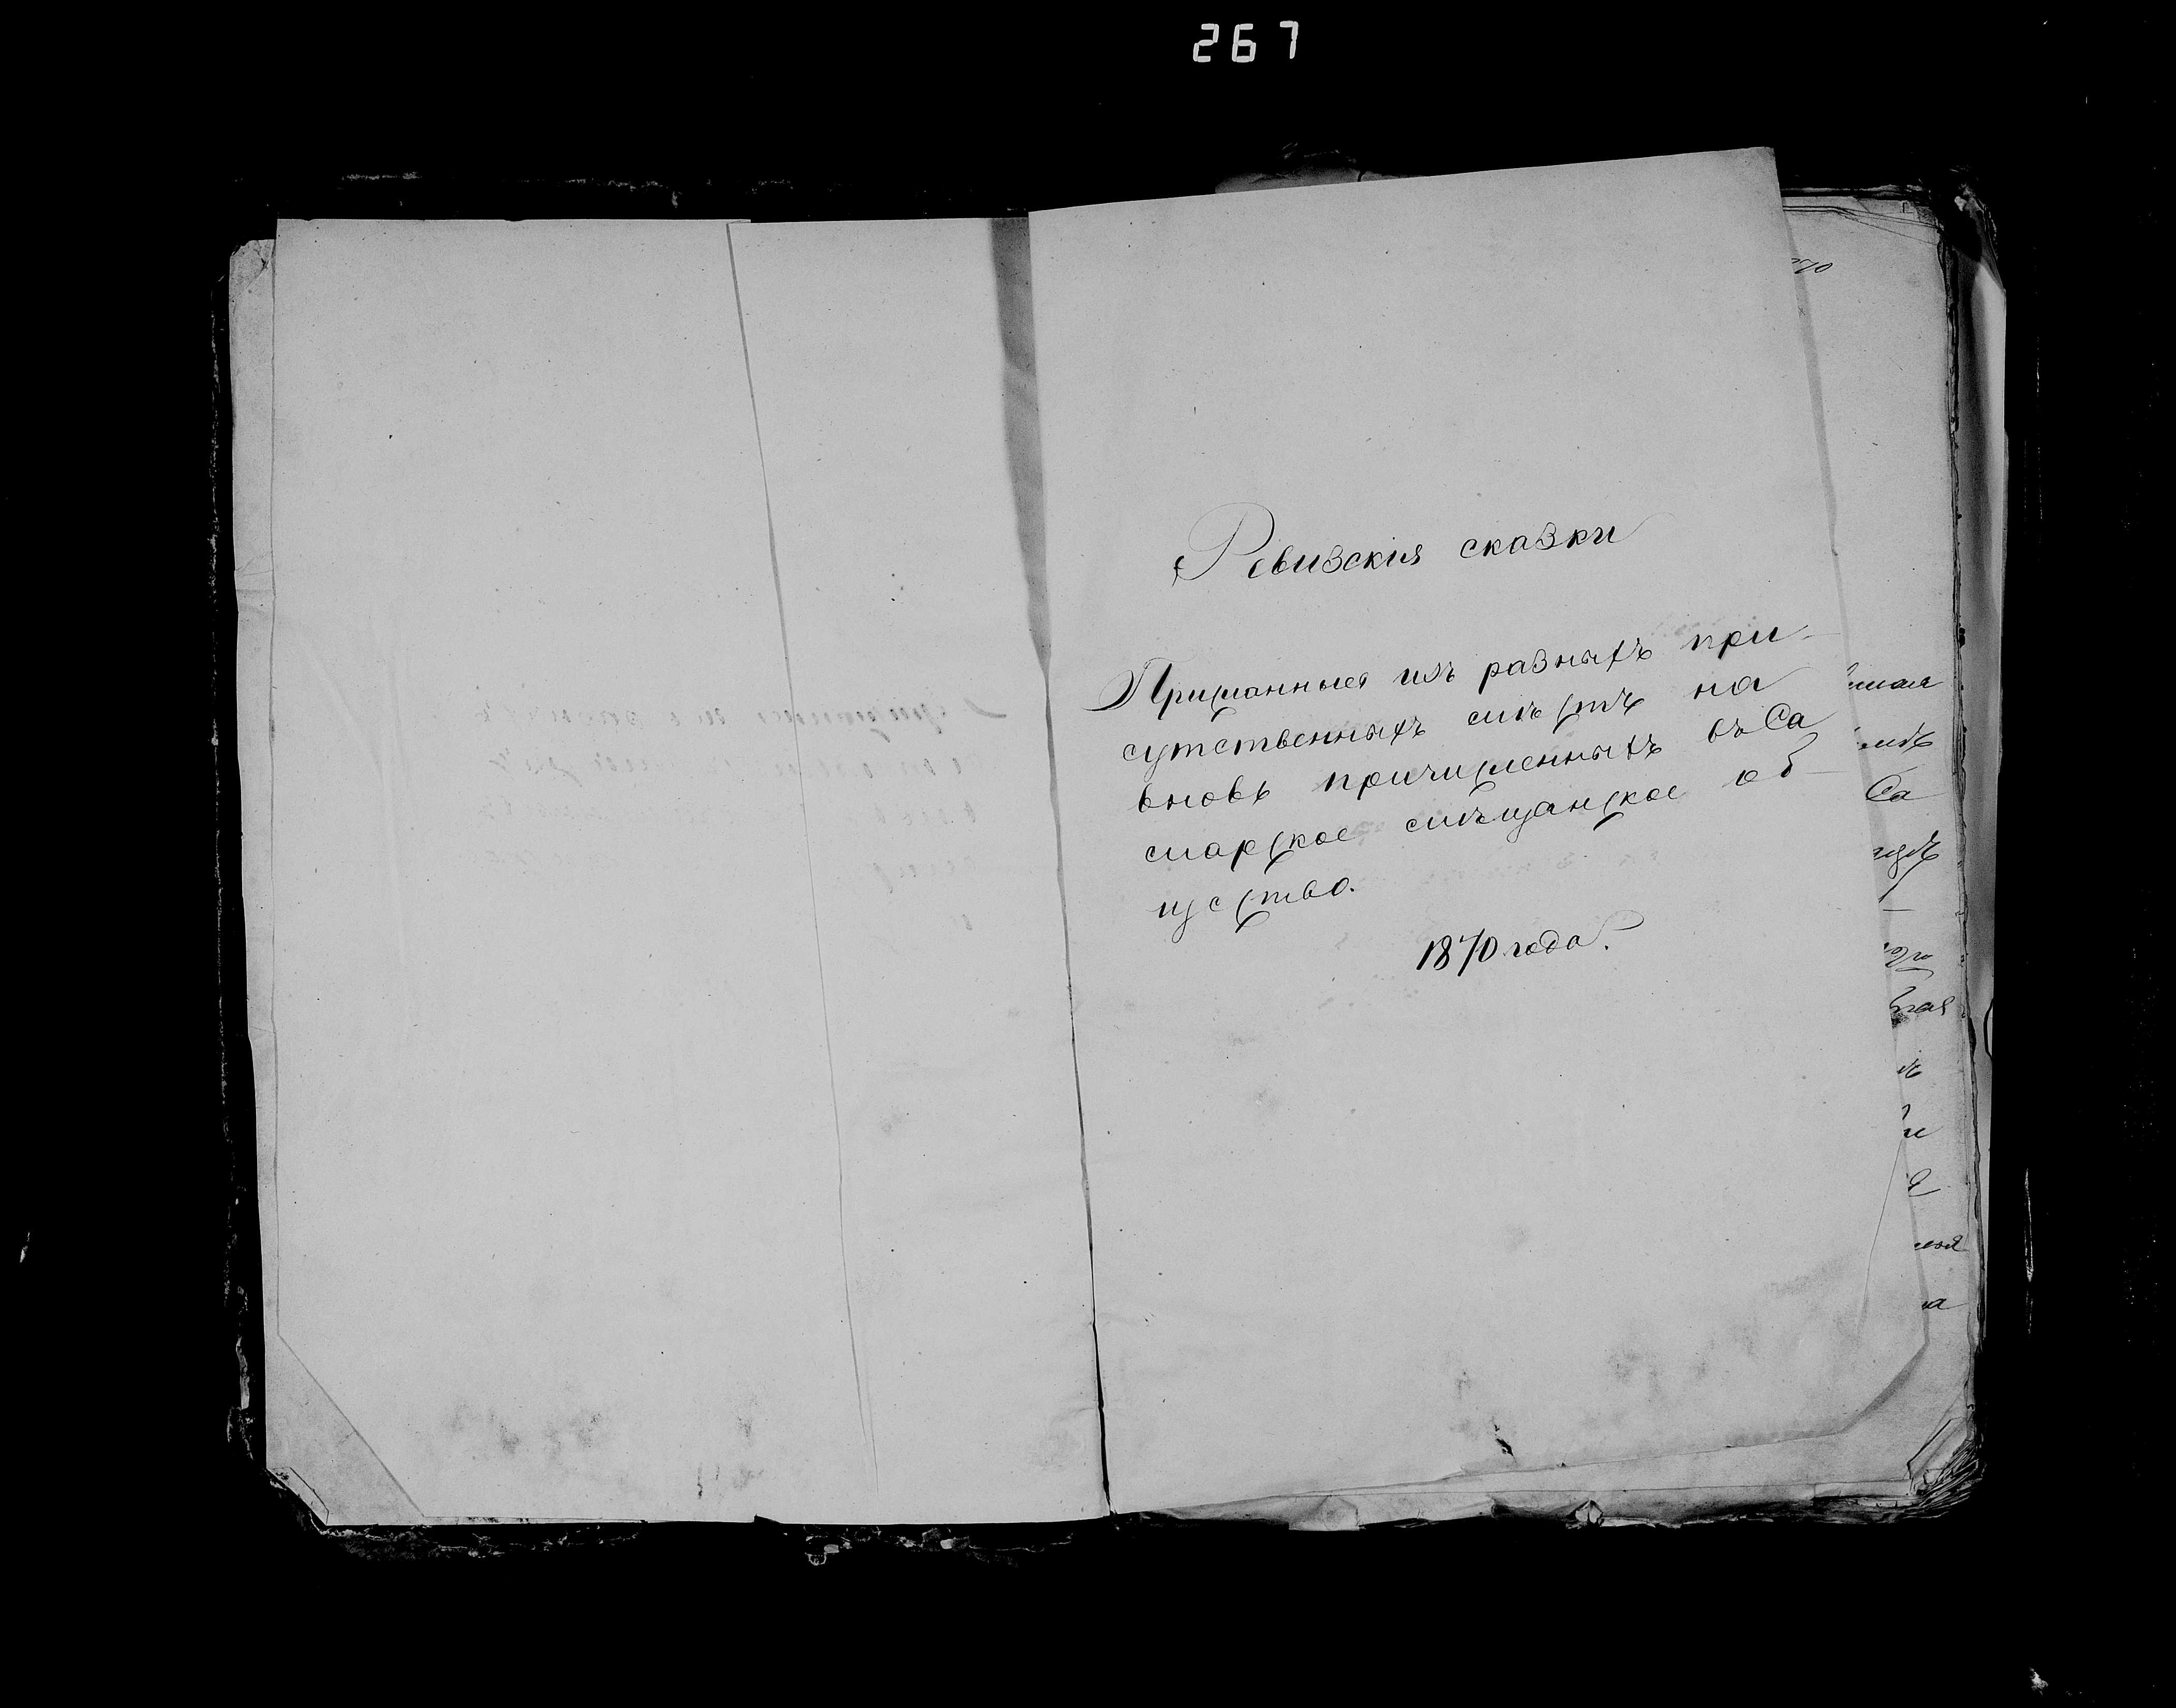 267
Ревизскія сказки
Присланныя изъ разныхъ при-
сутственныхъ мѣстъ на
вновь причисленныхъ въ Са
марское мѣщанское об-
щество.
1870 года.
Са